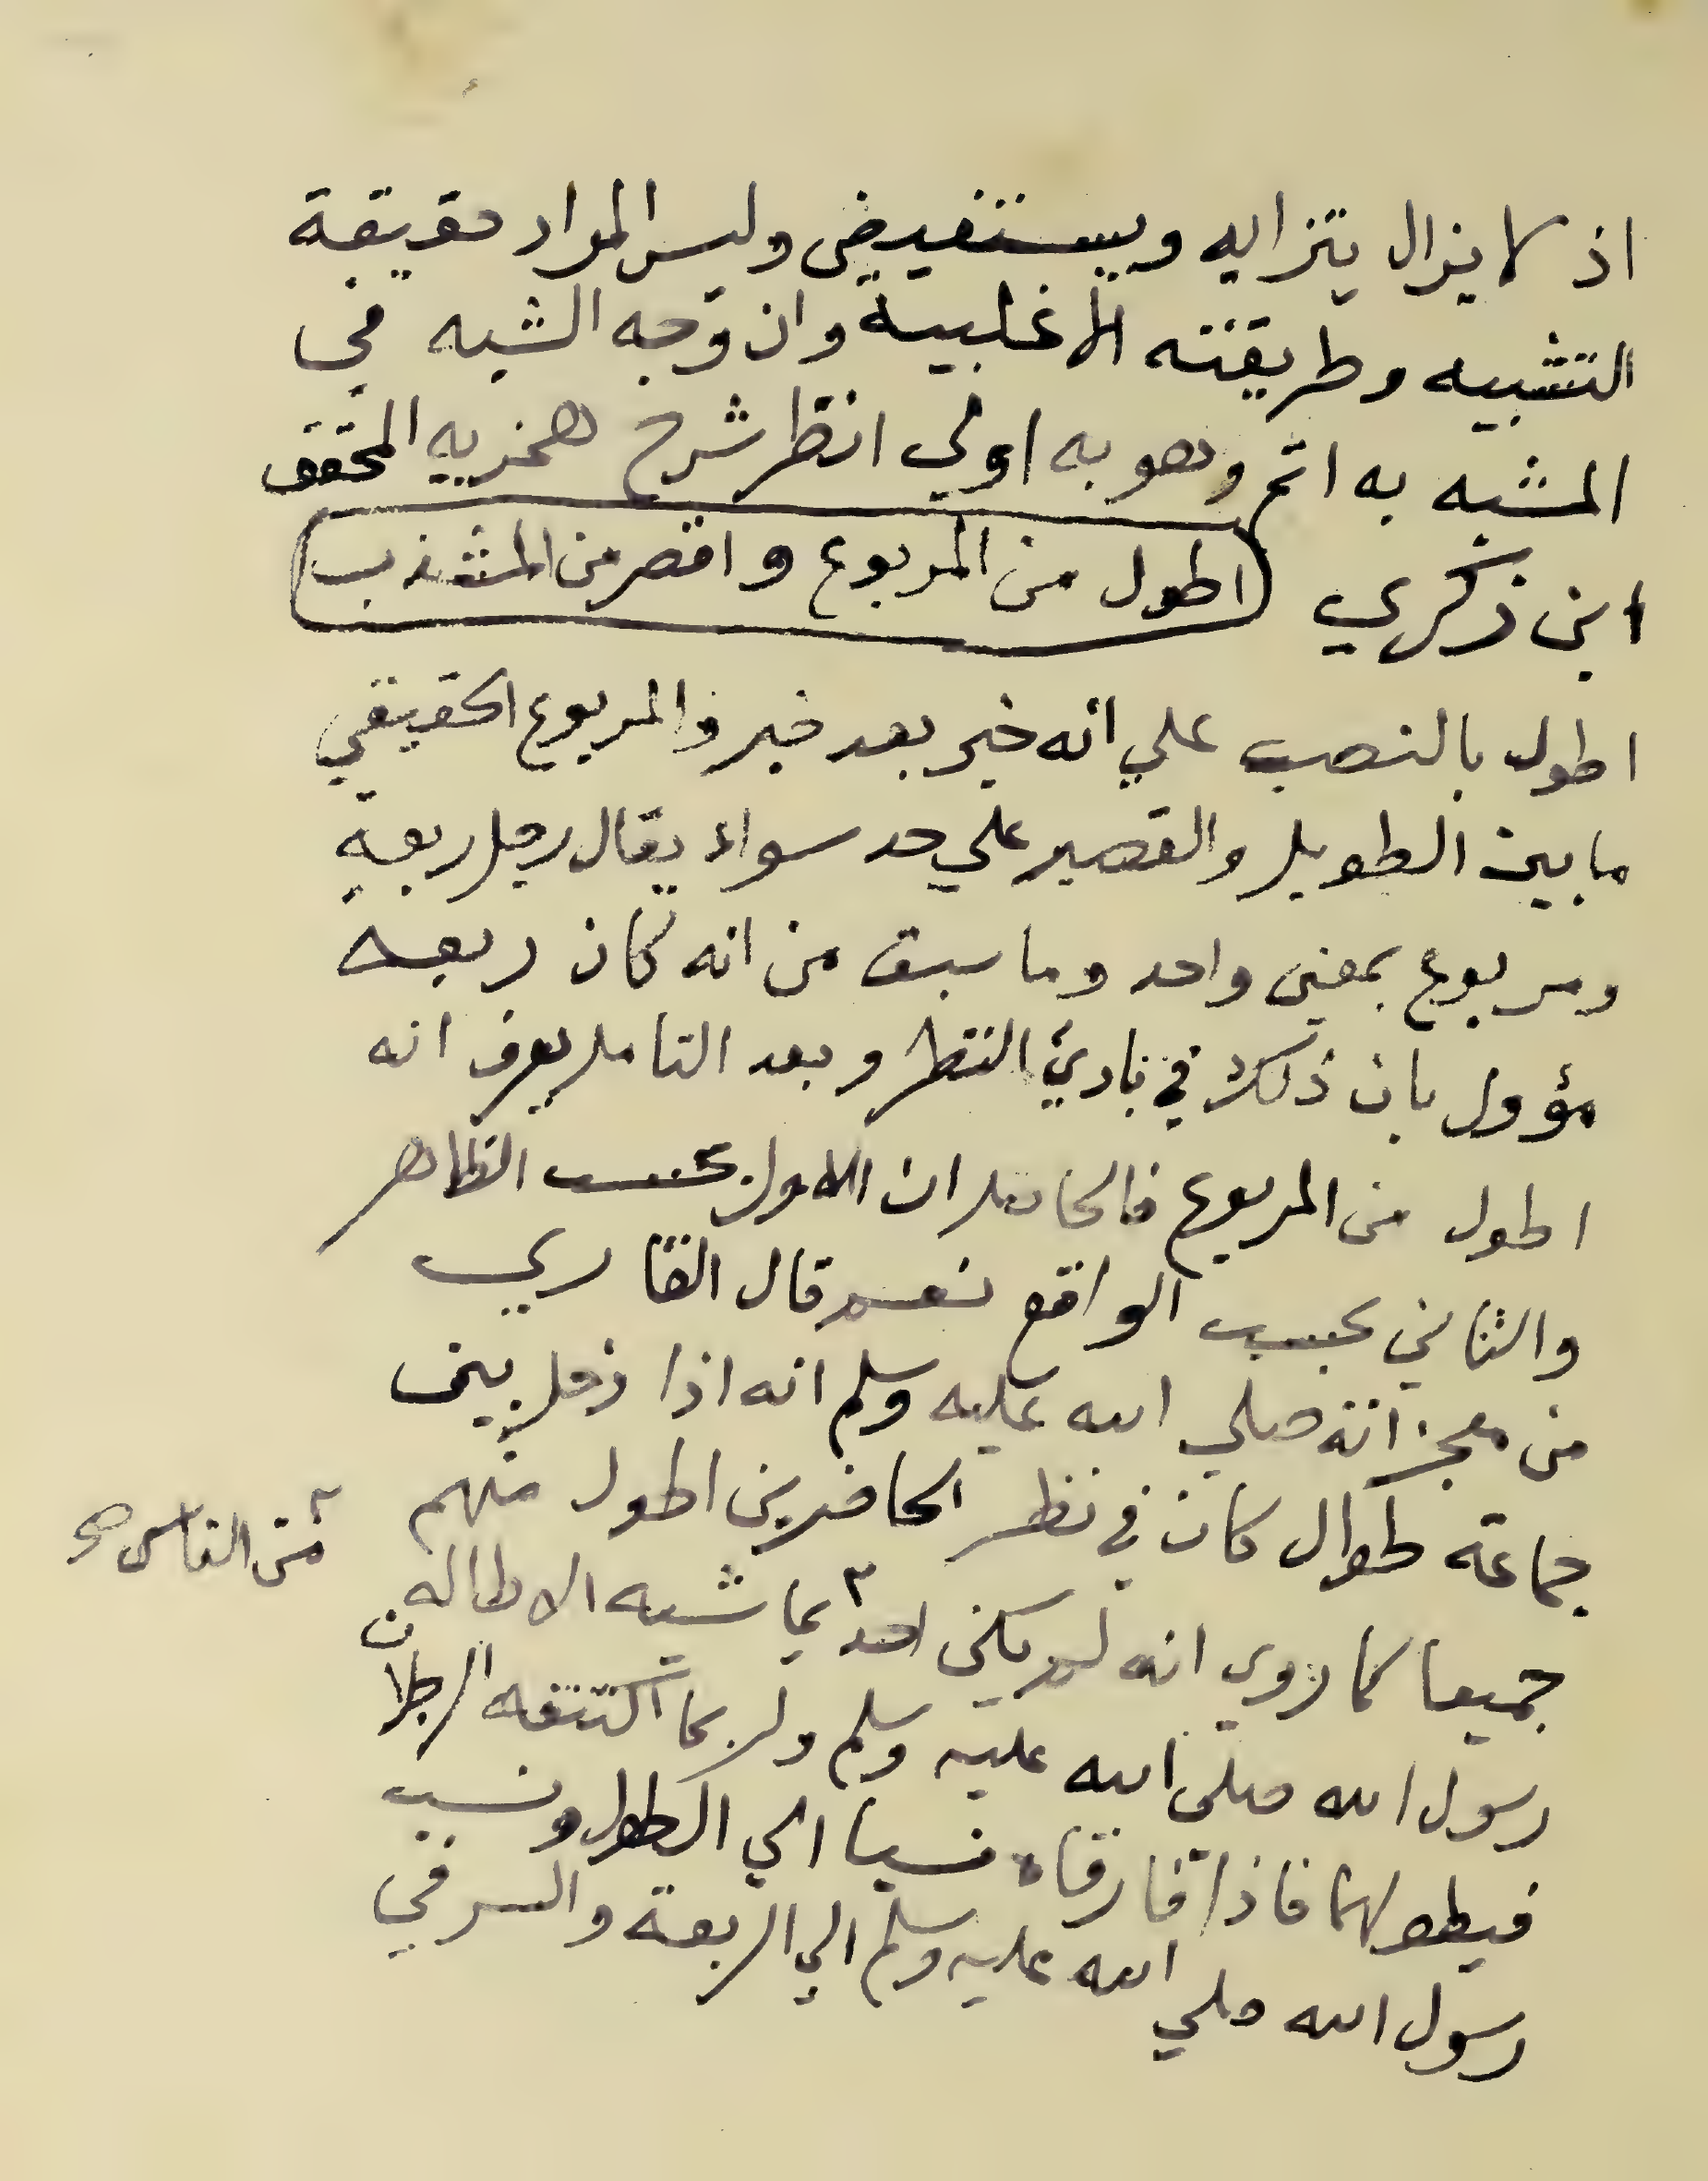 اذ لا يزال يتزايه ويستفيض وليس المراد حقيقة
التشبيه وطريقته الاغلبية وان وجه الشبه في
المشبه به اتم وهو به اولي انظر شرح همزيه المحقق
ابن ذكري اطول من المربوع واقصر من المشذب
اطول بالنصب علي انه خبر بعد خبر والمربوع الحقيقي
ما بين الطويل والقصير علي حد سواء يقال رجل ربعة
ومربوع بمعنى واحد وما سبق من انه كان ربعه
مؤول بان ذلك في بادئ النظر وبعد التامل يعرف انه
اطول من المربوع فالحاصل ان الاول بحسب الظاهر
والثاني بحسب الواقع نعم قال القاري
من معجزاته صلي الله عليه وسلم انه اذا دخل بين
جماعة طوال كان في نظر الحاضرين اطول منهم
جميعا كما روي انه لم يكن احد ٢ يماشيه الا طاله
٢ من الناس صح
رسول الله صلى الله عليه وسلم ولربما اكتنفه الرجلان
فيطولهما فاذا فارقاه نسبا الي الطول ونسب
رسول الله صلي الله عليه وسلم الي الربعة والسر في